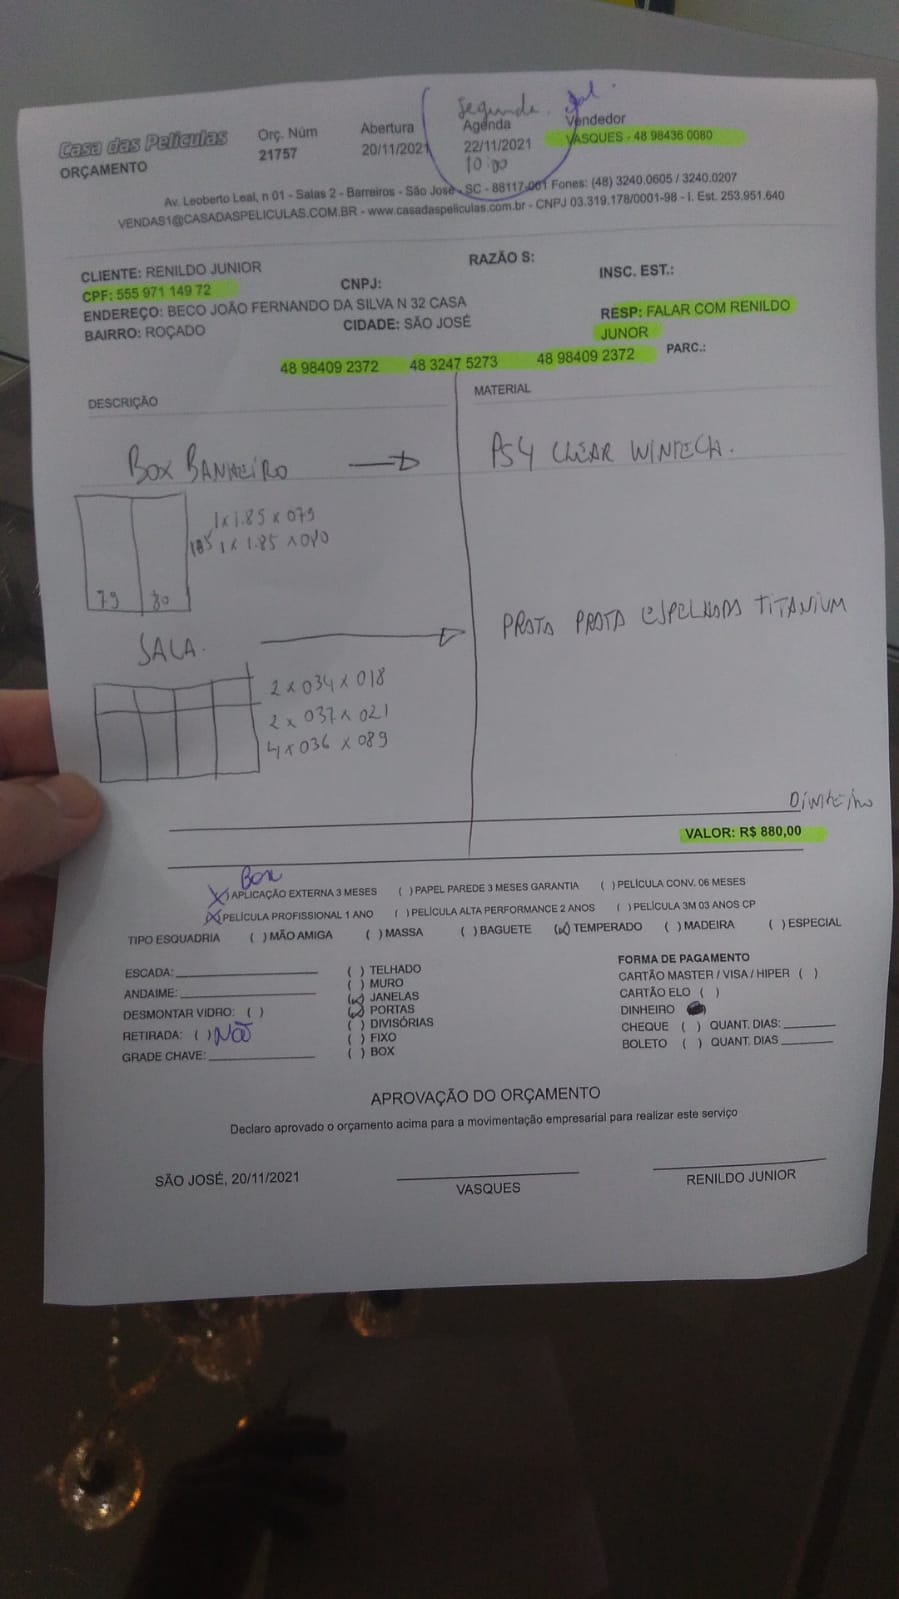 Segunda.
Casa das Películas
ORÇAMENTO
Orç. Núm
21757
Abertura
20/11/2021
Agenda
22/11/2021
10:00
Vendedor
VASQUES - 48 98436 0080
Av. Leoberto Leal, n 01 - Salas 2 - Barreiros - São José - SC - 88117-001 Fones: (48) 3240.0605 / 3240.0207
VENDAS1@CASADASPELICULAS.COM.BR - www.casadaspeliculas.com.br - CNPJ 03.319.178/0001-98 - I. Est. 253.951.640
CLIENTE: RENILDO JUNIOR
RAZÃO S:
CPF: 555 971 149 72
CNPJ:
INSC. EST.:
ENDEREÇO: BECO JOÃO FERNANDO DA SILVA N 32 CASA
BAIRRO: ROÇADO
CIDADE: SÃO JOSÉ
RESP: FALAR COM RENILDO
JUNOR
48 98409 2372 48 3247 5273 48 98409 2372
PARC.:
DESCRIÇÃO
MATERIAL
BOX BANHEIRO
PS4 CLEAR WINTECH.
1 x 1.85 x 079
185 1 x 1.85 x 080
79 80
SALA.
PRATA PRATA ESPELHADA TITANIUM
2 x 034 x 018
2 x 037 x 021
4 x 036 x 089
Dinheiro
VALOR: R$ 880,00
Box
(X) APLICAÇÃO EXTERNA 3 MESES ( ) PAPEL PAREDE 3 MESES GARANTIA ( ) PELÍCULA CONV. 06 MESES
(X) PELÍCULA PROFISSIONAL 1 ANO ( ) PELÍCULA ALTA PERFORMANCE 2 ANOS ( ) PELÍCULA 3M 03 ANOS CP
TIPO ESQUADRIA ( ) MÃO AMIGA ( ) MASSA ( ) BAGUETE (x) TEMPERADO ( ) MADEIRA ( ) ESPECIAL
ESCADA:
ANDAIME:
DESMONTAR VIDRO: ( )
RETIRADA: ( ) NÃO
GRADE CHAVE:
( ) TELHADO
( ) MURO
(x) JANELAS
(x) PORTAS
( ) DIVISÓRIAS
( ) FIXO
( ) BOX
FORMA DE PAGAMENTO
CARTÃO MASTER / VISA / HIPER ( )
CARTÃO ELO ( )
DINHEIRO
CHEQUE ( ) QUANT. DIAS:
BOLETO ( ) QUANT. DIAS
APROVAÇÃO DO ORÇAMENTO
Declaro aprovado o orçamento acima para a movimentação empresarial para realizar este serviço
SÃO JOSÉ, 20/11/2021
VASQUES
RENILDO JUNIOR